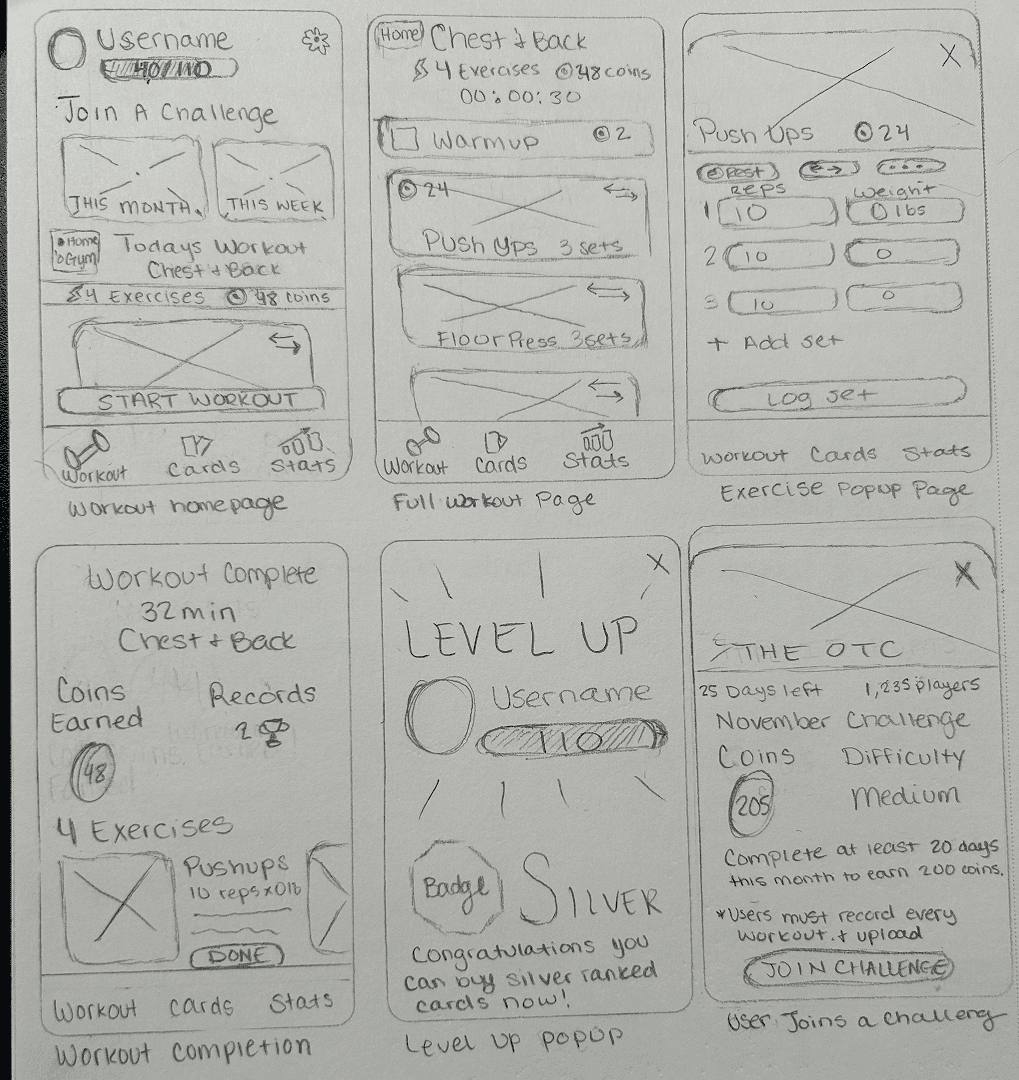 Username
40/110
Join A Challenge
THIS MONTH
THIS WEEK
Home
Gym
Todays Workout
Chest + Back
4 Exercises 48 coins
START WORKOUT
Workout Cards Stats
Workout homepage
Home
Chest + Back
4 Exercises 48 coins
00:00:30
Warmup 2
24
Push Ups 3 sets
Floor Press 3 sets
Workout Cards Stats
Full Workout Page
X
Push Ups 24
Rest
Reps Weight
1 10 0 lbs
2 10 0
3 10 0
+ Add set
Log set
Workout Cards Stats
Exercise Popup Page
Workout Complete
32 min
Chest + Back
Coins
Earned
48
Records
2
4 Exercises
Pushups
10 reps x 0lb
DONE
Workout Cards Stats
Workout completion
X
LEVEL UP
Username
110
Badge
SILVER
Congratulations you
can buy silver ranked
cards now!
Level Up popup
X
THE OTC
25 Days left 1,235 players
November Challenge
Coins Difficulty
205 Medium
Complete at least 20 days
this month to earn 200 coins.
*Users must record every
workout + upload
JOIN CHALLENGE
User Joins a challeng